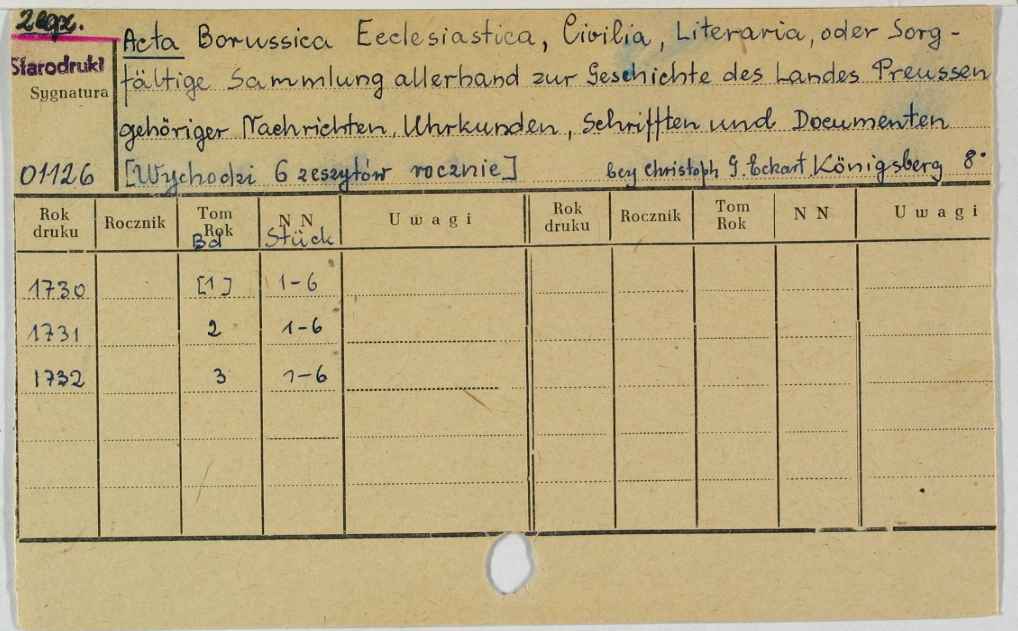 2 egz.
Starodruki
Sygnatura
01126
Acta Borussica Ecclesiastica, Civilia, Literaria, oder Sorg-
fältige Sammlung allerhand zur Geschichte des Landes Preussen
gehöriger Nachrichten, Uhrkunden, Schrifften und Documenten
[Wychodzi 6 zeszytów rocznie] bey Christoph G. Eckart Königsberg 8°
Rok druku Rocznik Tom Rok Bd N N Stück Uwagi Rok druku Rocznik Tom Rok N N Uwagi
1730 [1] 1-6
1731 2 1-6
1732 3 1-6